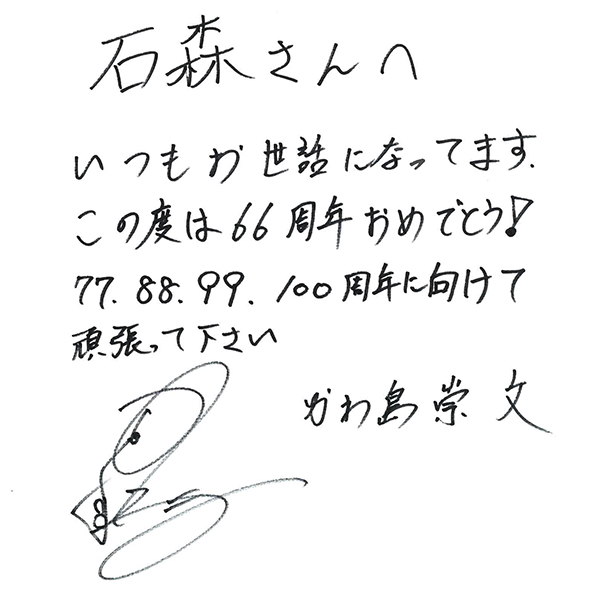 石森さんへ
いつもお世話になってます.
この度は66周年おめでとう!
77.88.99.100周年に向けて
頑張って下さい
かわ島崇文